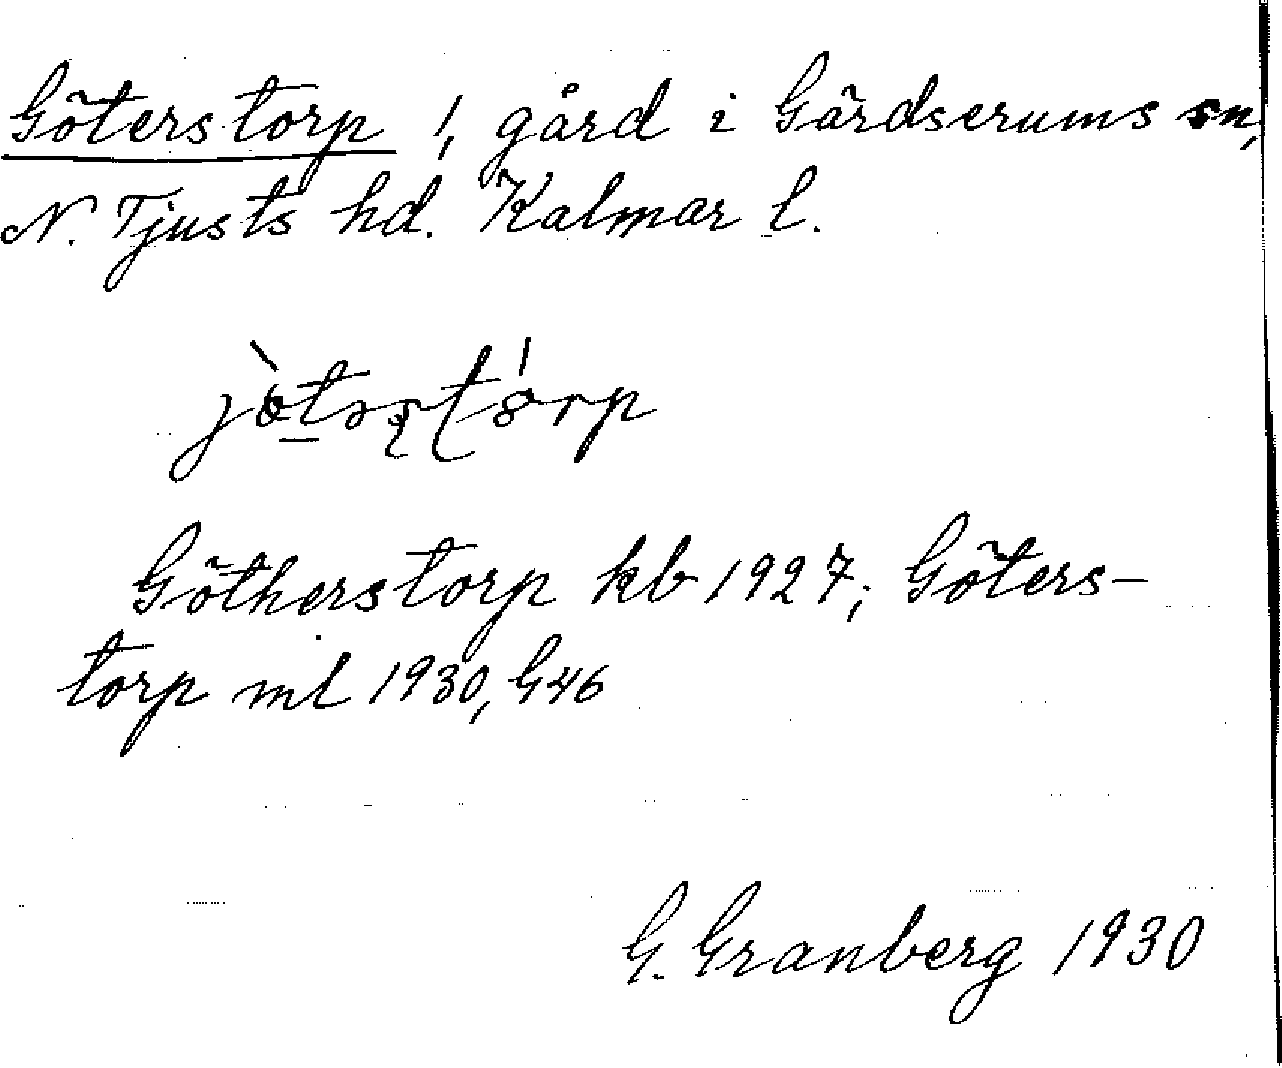 Göterstorp !, gård i Gärdserums sn,
N. Tjusts hd. Kalmar l.
Götherstorp kb 1927; Göters-
torp ml 1930, G46
G. Granberg 1930